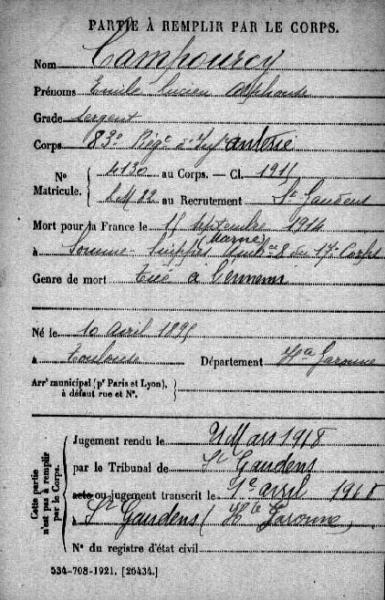 PARTIE À REMPLIR PAR LE CORPS.
Nom Campourcy
Prénoms Emile Lucien Alphonse
Grade Sergent
Corps 83e Régt d'Infanterie
Nº Matricule. 4130 au Corps. — Cl. 1915
au Recrutement St Gaudens
Mort pour la France le 15 septembre 1914
(Marne)
à Somme-Suippes Amb ce 8 du 17e Corps
Genre de mort tué à l'ennemi
Né le 10 avril 1895
à Toulouse Département Hte Garonne
Arrt municipal (pr Paris et Lyon), à défaut rue et Nº.
Cette partie n'est pas à remplir par le Corps.
Jugement rendu le Mars 1918
par le Tribunal de St Gaudens
acte ou jugement transcrit le 1e avril 1918
à St Gaudens (Hte Garonne)
Nº du registre d'état civil
534-708-1921. [26434.]